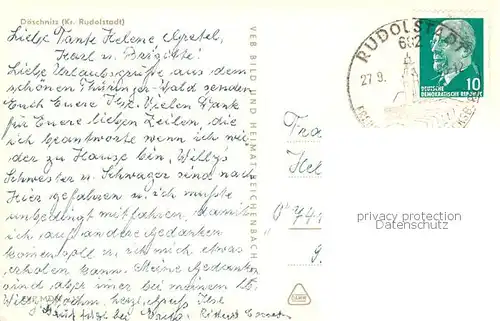 Döschnitz (Kr. Rudolstadt)
Liebe Tante Helene Gretel,
Karl u. Brigitte!
Liebe Urlaubsgrüße aus dem
schönen Thüringer-Wald senden
Euch Euere Ilse. Vielen Dank
für Euere lieben Zeilen, die
ich beantworte wenn ich wie
der zu Hause bin. Willy's
Schwester u. Schwager sind nach
Hier gefahren u. ich mußte
unbedingt mitfahren, damit
ich auf andere Gedanken
kommen soll u. ich mich etwas
erholen kann. Meine Gedanken
sind aber immer bei meinem lb.
Willy. Nochm. herzl. Gruß Ilse
VEB BILD UND HEIMAT REICHENBACH
RUDOLSTADT
682
27.9.
10
DEUTSCHE
DEMOKRATISCHE REPUBLIK
Fra
Hel
privacy protection
Datenschutz